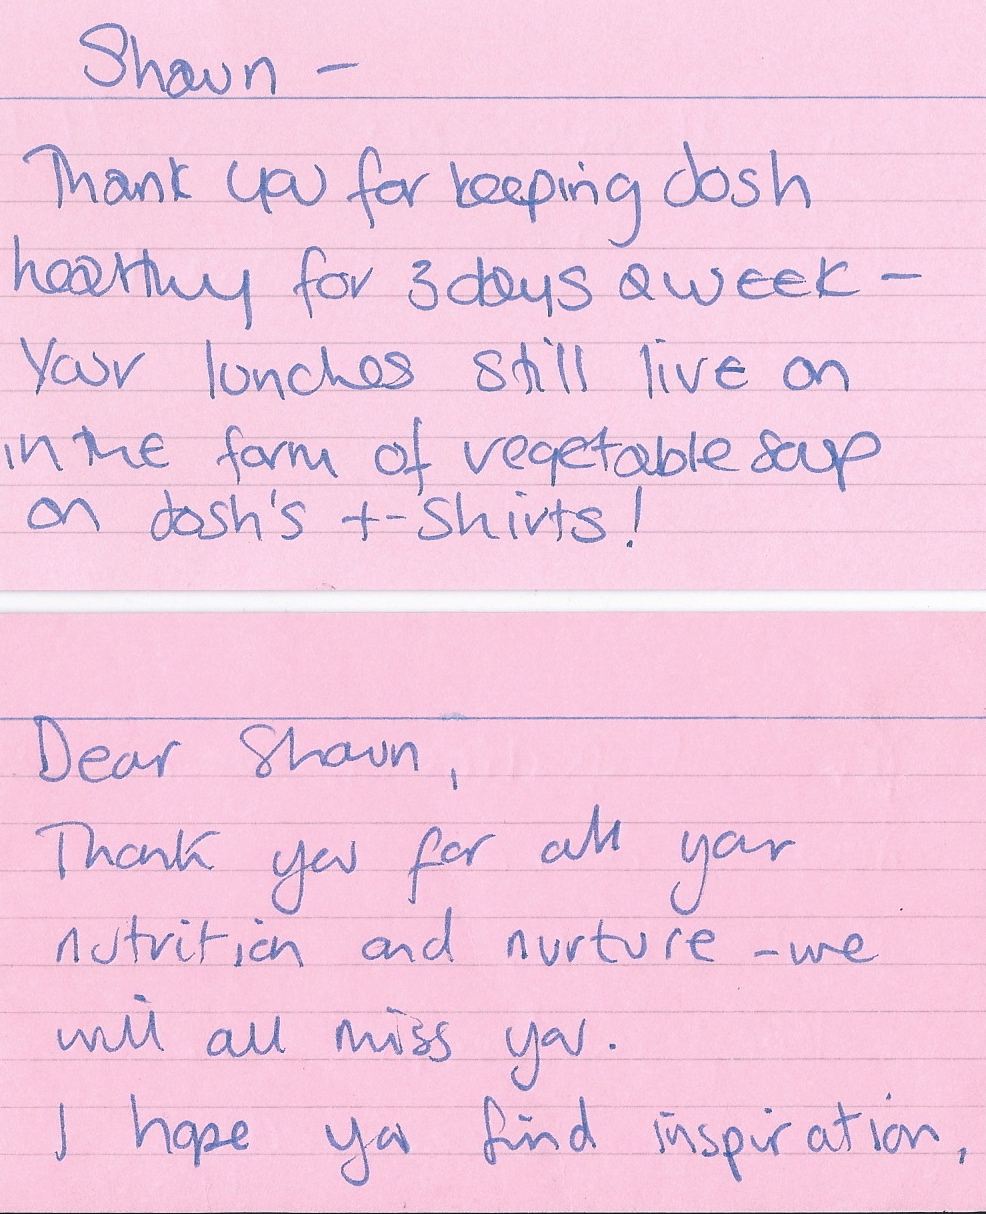 Shaun -
Thank you for keeping Josh
healthy for 3 days a week -
Your lunches still live on
in the form of vegetable soup
on Josh's t-shirts!
Dear Shaun,
Thank you for all your
nutrition and nurture - we
will all miss you.
I hope you find inspiration,